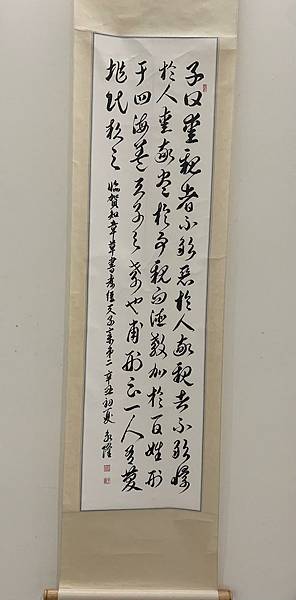 子曰愛親者不敢惡於人敬親者不敢慢
於人愛敬盡於事親而德教加於百姓刑
于四海蓋天子之孝也甫刑云一人有慶
兆民賴之 臨賀知章草書孝經天子章第二 辛丑初夏